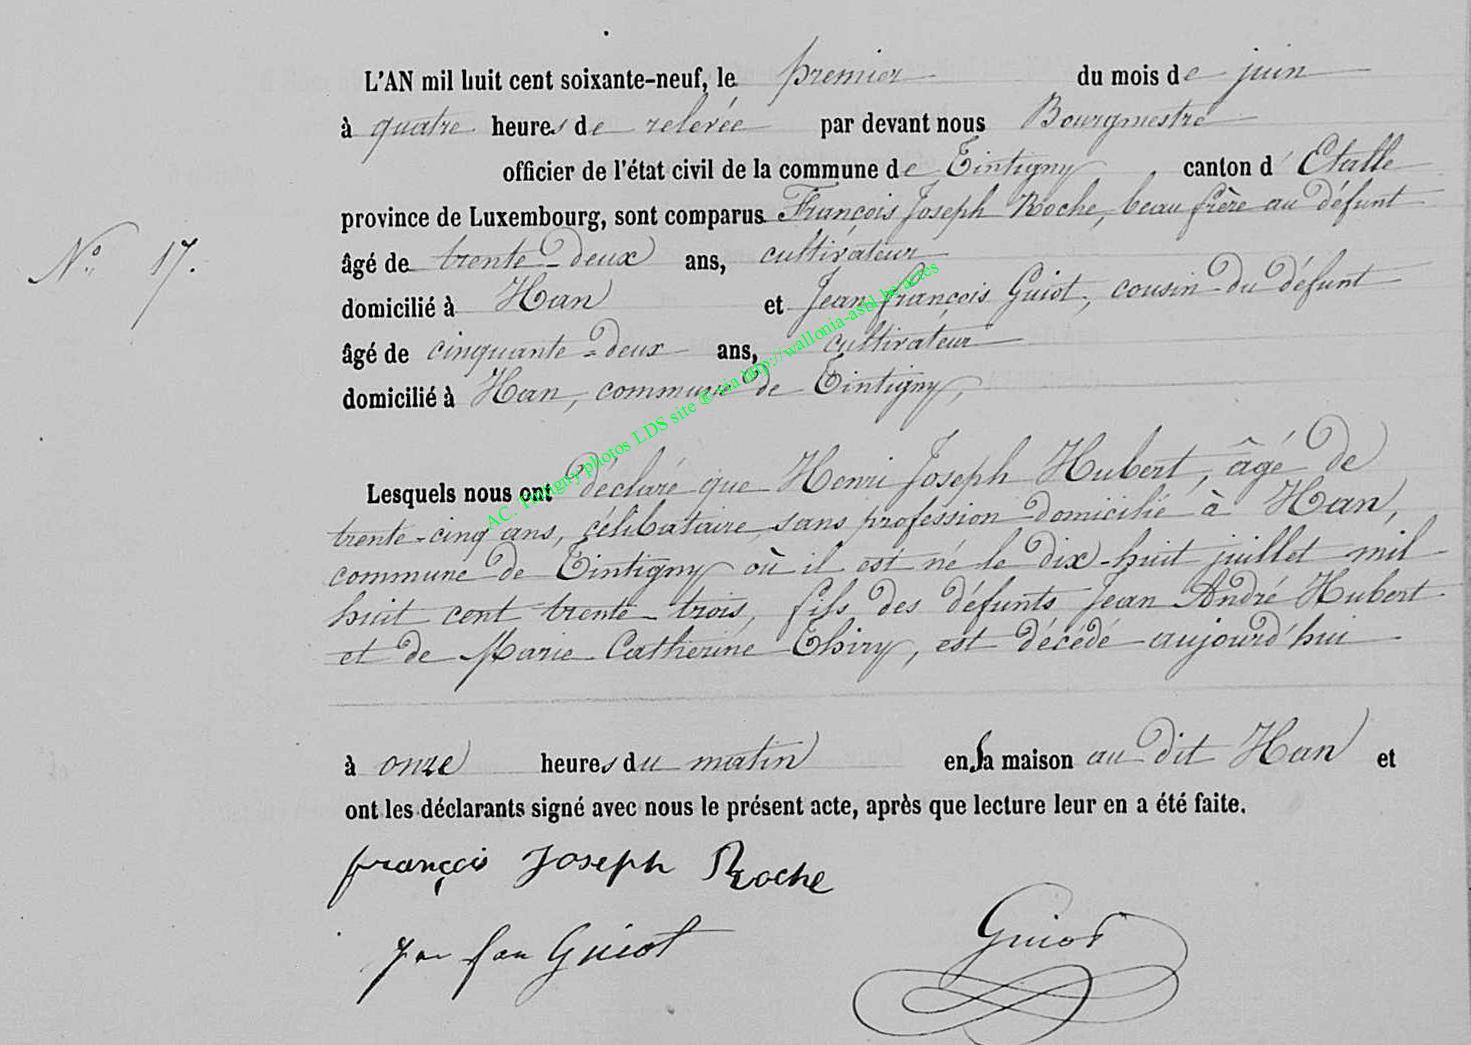 L'AN mil huit cent soixante-neuf, le premier du mois de juin
à quatre heures de relevée par devant nous Bourgmestre
officier de l'état civil de la commune de Tintigny canton d'Etalle
province de Luxembourg, sont comparus François Joseph Roche, beau frère au défunt
âgé de trente-deux ans, cultivateur
N° 17.
domicilié à Han et Jean françois Guiot, cousin du défunt
âgé de cinquante-deux ans, cultivateur
domicilié à Han, commune de Tintigny,
AC. Tintigny photos LDS site ® via http://wallonia-asbl.be/actes
Lesquels nous ont déclaré que Henri Joseph Hubert, âgé de
trente-cinq ans, célibataire, sans profession domicilié à Han,
commune de Tintigny où il est né le dix-huit juillet mil
huit cent trente-trois, fils des défunts Jean André Hubert
et de Marie Catherine Thiry, est décédé aujourd'hui
à onze heures du matin en sa maison au dit Han et
ont les déclarants signé avec nous le présent acte, après que lecture leur en a été faite.
françois Joseph Roche
Jea fan Guiot
Guiot